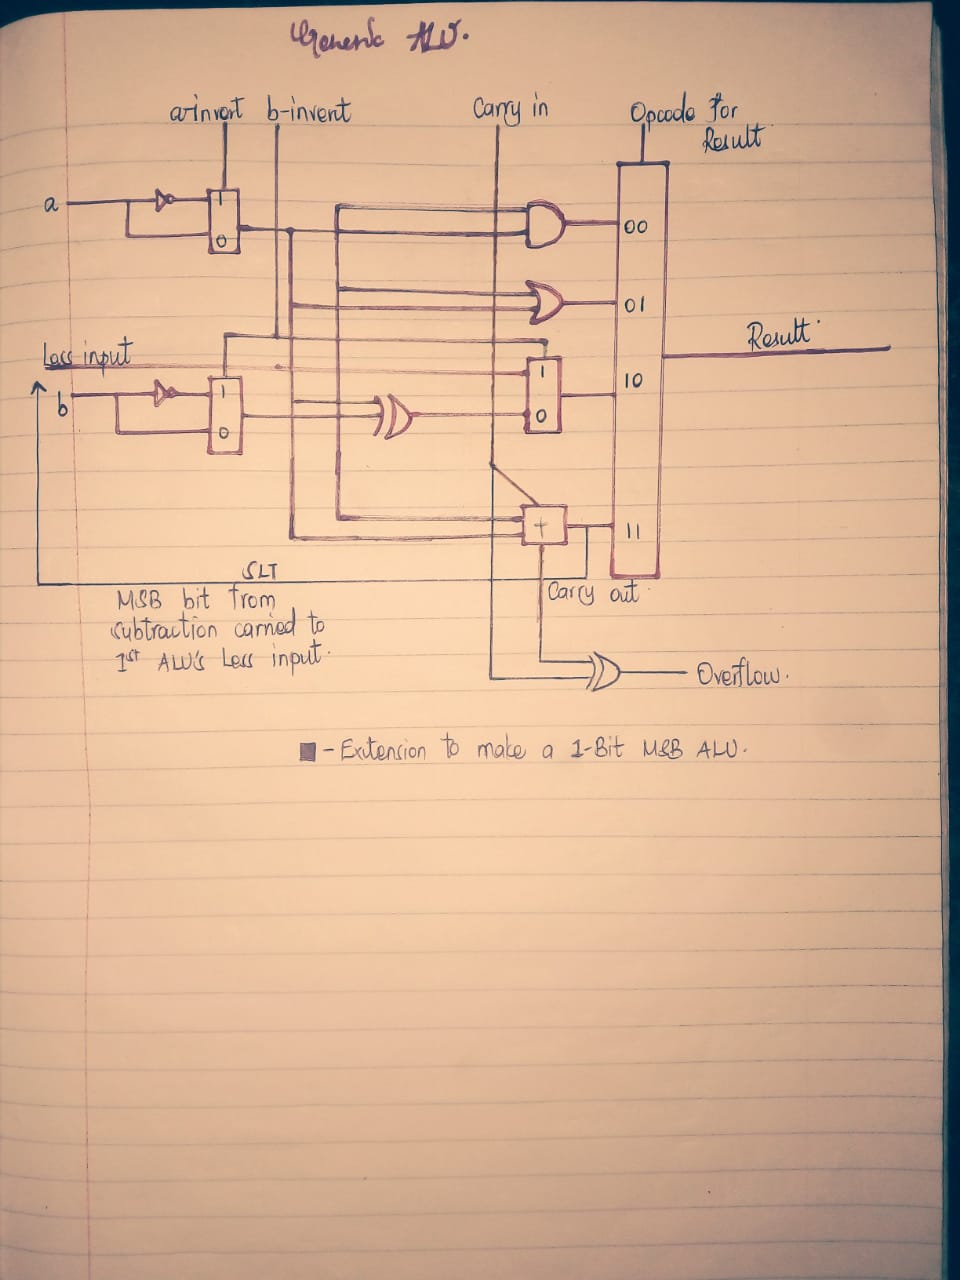 Generic ALU.
a-invert b-invert Carry in Opcode for
Result
a
1
0
00
01
Less input
Result
b
1
0
1
0
10
+
11
SLT
MSB bit from
subtraction carried to
1st ALU's Less input.
Carry out
Overflow.
- Extension to make a 1-Bit MSB ALU.